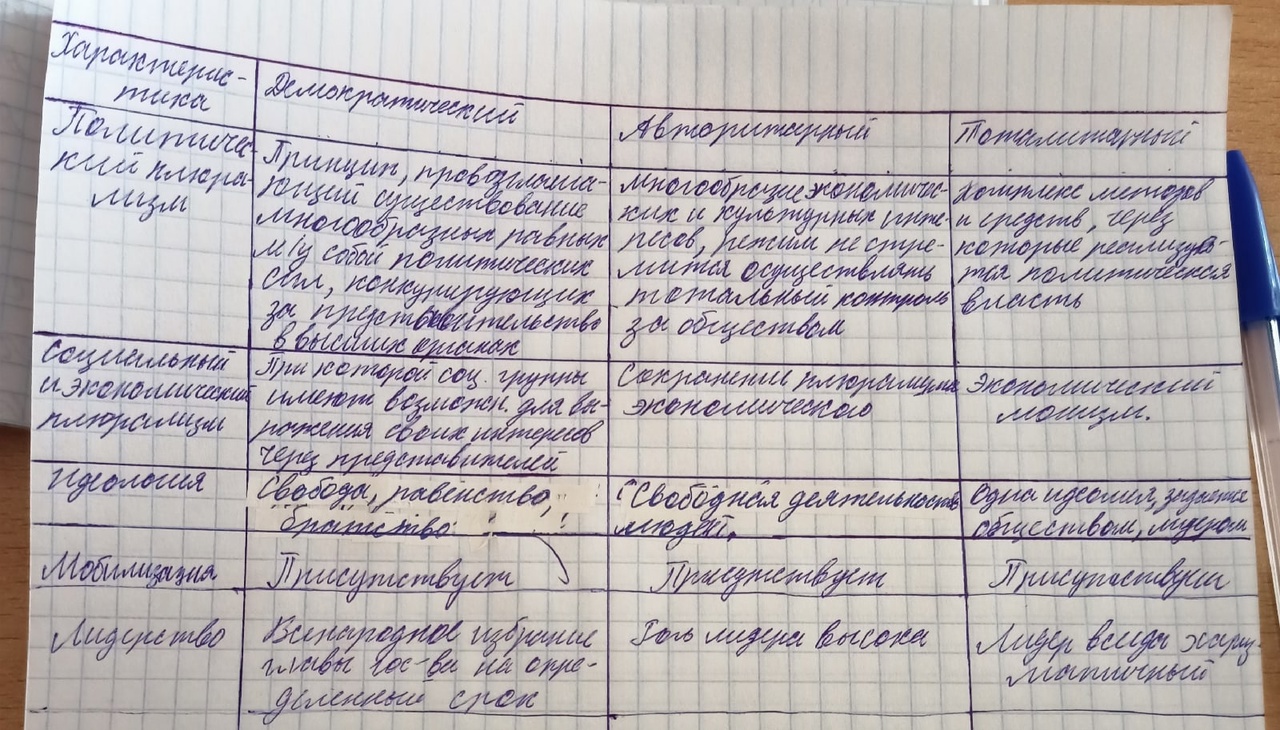 Характерис-
тика
Демократический
Авторитарный
Тоталитарный
Политичес-
кий плюра-
лизм
Принцип, провозглаша-
ющий существование
многообразных равных
м/у собой политических
сил, конкурирующих
за представительство
в высших органах
многообразие экономичес-
ких и культурных инте-
ресов, режим не стре-
мится осуществлять
тотальный контроль
за обществом
Комплекс методов
и средств, через
которые реализуе-
тся политическая
власть
Социальный
и экономический
плюрализм
При которой соц. группы
имеют возможн. для вы-
ражения своих интересов
через представителей
Сохранение плюрализма
экономического
Экономический
монизм.
Идеология
Свобода, равенство,
братство
Свободная деятельность
людей.
Одна идеолия, задается
обществом, лидером
Мобилизация
Присутствует
Присутствует
Присутствует
Лидерство
Всенародное избрание
главы гос-ва на опре-
деленный срок
Роль лидера высока
Лидер всегда хариз-
матичный